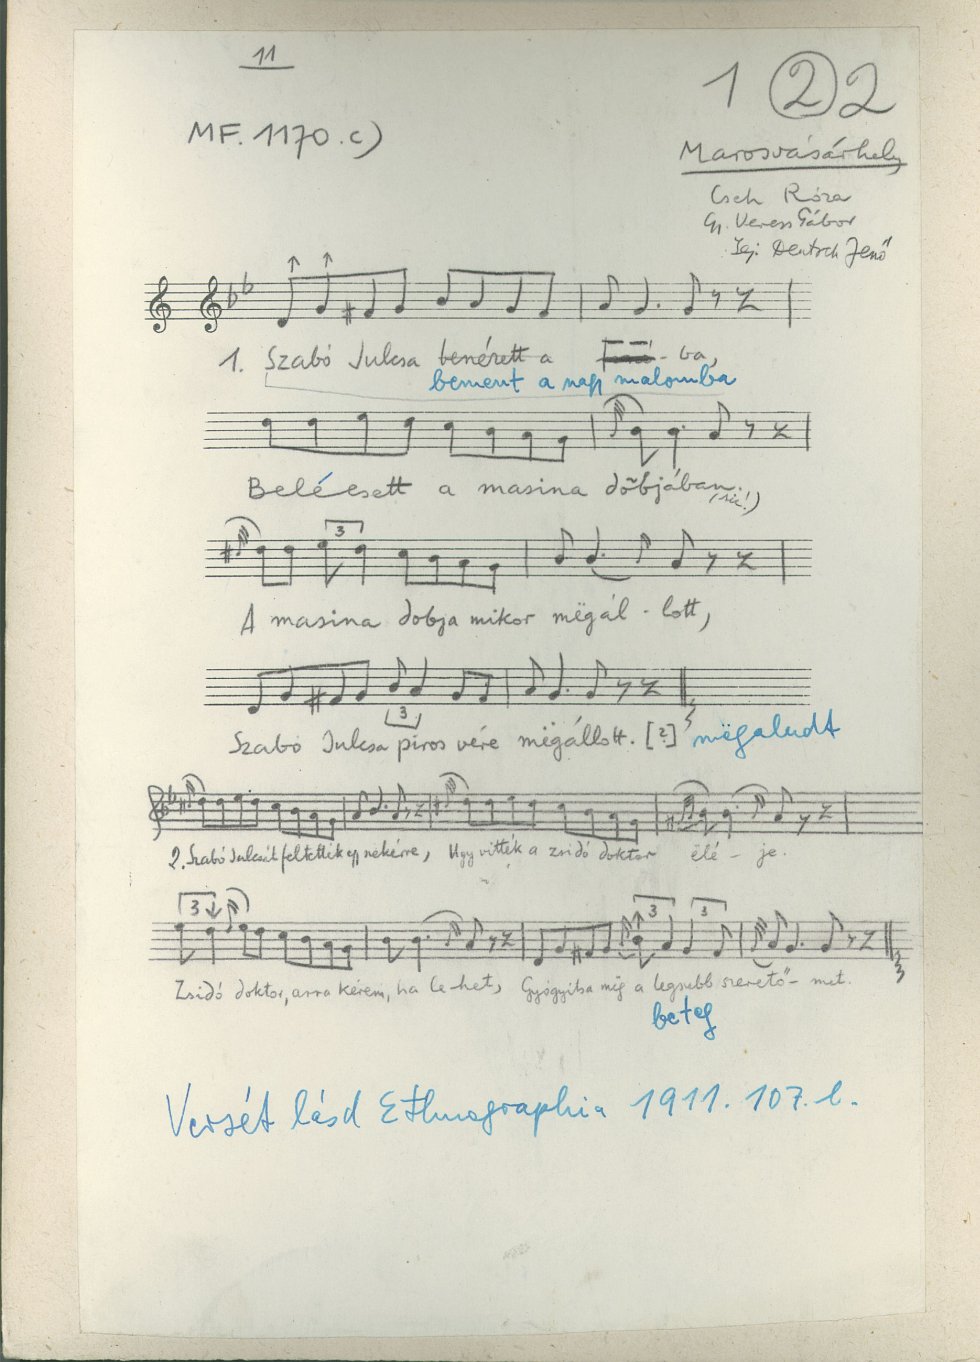 11
1 2 2
MF. 1170.c)
Marosvásárhely
Cseh Róza
Gy. Veress Gábor
Lej. Deutsch Jenő
1. Szabó Julcsa benézett a - ba,
bement a nagy malomba
Beléesett a masina dõbjában.
(sic!)
3
A masina dobja mikor mëgál - lott,
3
Szabó Julcsa piros vére mëgállott. [?] mëgaludt
2. Szabó Julcsát feltették egy szekérre, Ugy vitték a zsidó doktor elé - je.
3 3 3
Zsidó doktor, arra kérem, ha le-het, Gyógyitsa mëg a legszebb szerető - met.
beteg
Versét lásd Ethnographia 1911. 107. l.